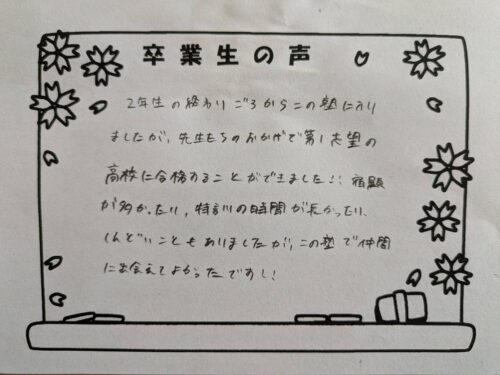 卒業生の声
2年生の終わりごろからこの塾に入り
ましたが、先生たちのおかげで第1志望の
高校に合格することができました!! 宿題
が多かったり、特訓の時間が長かったり、
しんどいこともありましたが、この塾で仲間
に出会えてよかったです!